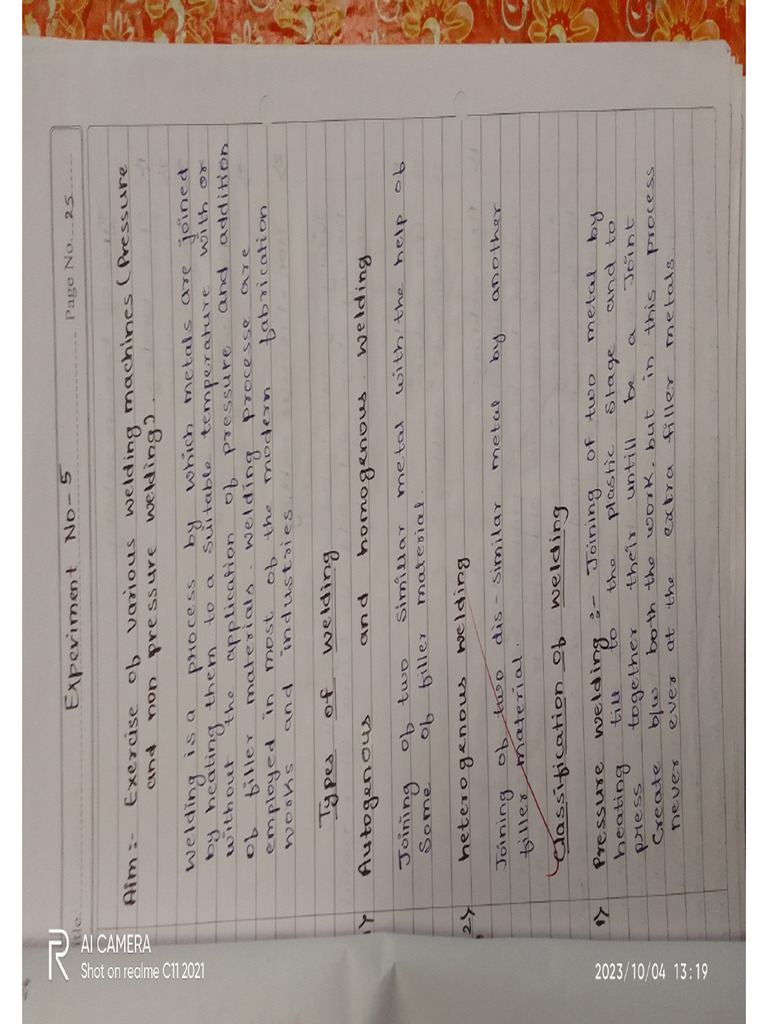 Experiment No-5
Page No. 25
Aim :- Exercise of various welding machines (Pressure
and non pressure welding).
welding is a process by which metals are joined
by heating them to a suitable temperature with or
without the application of pressure and addition
of filler materials. welding processe are
employed in most of the modern fabrication
works and industries.
Types of welding
1) Autogenous and homogenous welding
Joining of two simillar metal with the help of
Some of filler material.
2) heterogenous welding
Joining of two dis-similar metal by another
filler material.
Classification of welding
1) Pressure welding :- Joining of two metal by
heating till to the plastic stage and to
press together their untill be a Joint
Create b/w both the work. but in this process
never ever at the extra filler metals
AI CAMERA
Shot on realme C11 2021
2023/10/04 13:19